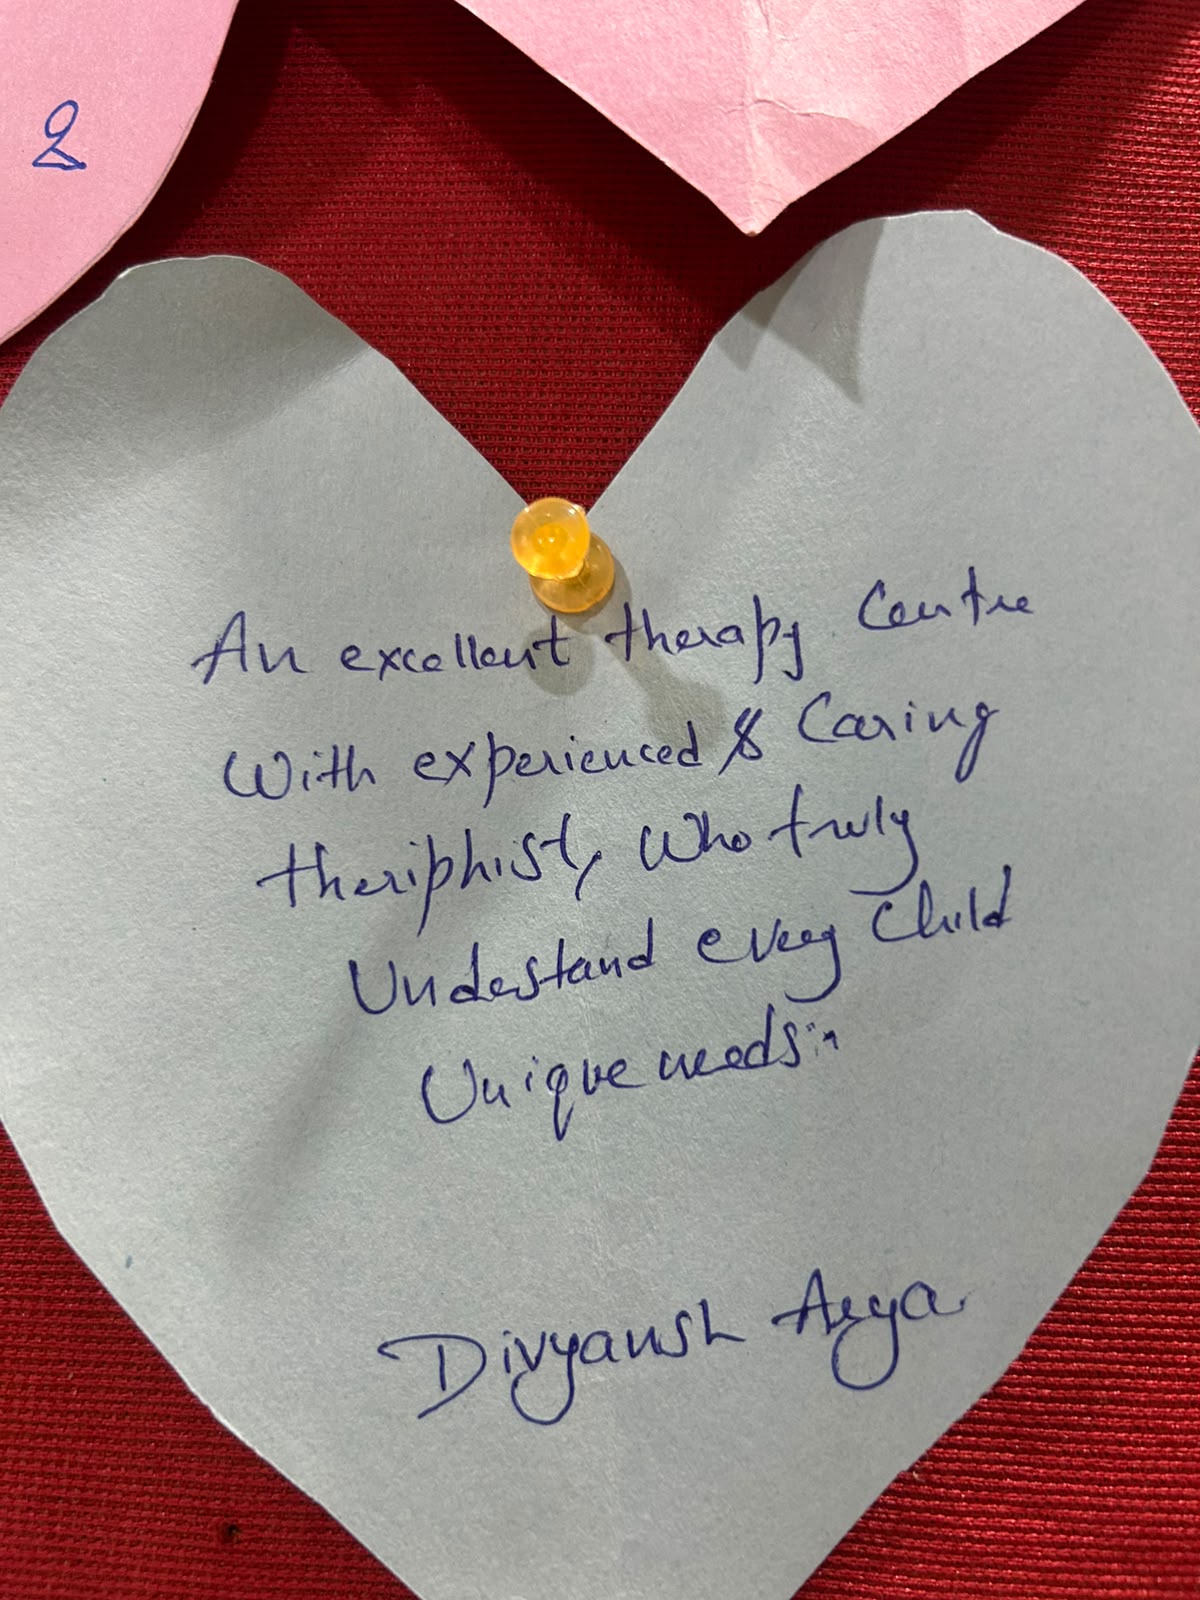 &
An excellent therapy Centre
With experienced & Caring
theriphist, Who truly
Undestand every Child
Unique needs..
Divyansh Arya